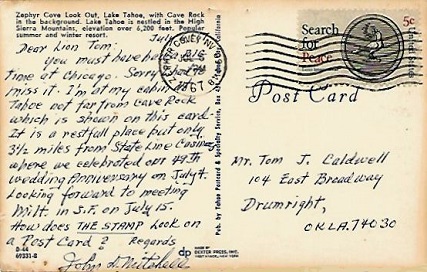 Zephyr Cove Look Out, Lake Tahoe, with Cave Rock
in the background. Lake Tahoe is nestled in the High
Sierra Mountains, elevation over 6,200 feet. Popular
summer and winter resort.
July
Dear Lion Tom:
You must have had a
time at Chicago. Sorry I had to
miss it. I'm at my cabin
Tahoe not far from Cave Rock
which is shown on this card.
It is a restfull place but only
3½ miles from State Line Casinos
where we celebrated our 49th
Wedding Anniversary on July 4.
Looking forward to meeting
Milt. in S.F. on July 15.
How does THE STAMP Look on
a Post Card? Regards
John D. Mitchell
D-44
69331-B
ZEPHYR COVE, NV
JUL
1967
Search
for
Peace
5c
United States
Post Card
Mr. Tom J. Caldwell
104 East Broadway
Drumright,
OKLA. 74030
Pub. by Tahoe Postcard & Specialty Service, Box
California
dp
MADE BY
DEXTER PRESS, INC.
WEST NYACK, NEW YORK